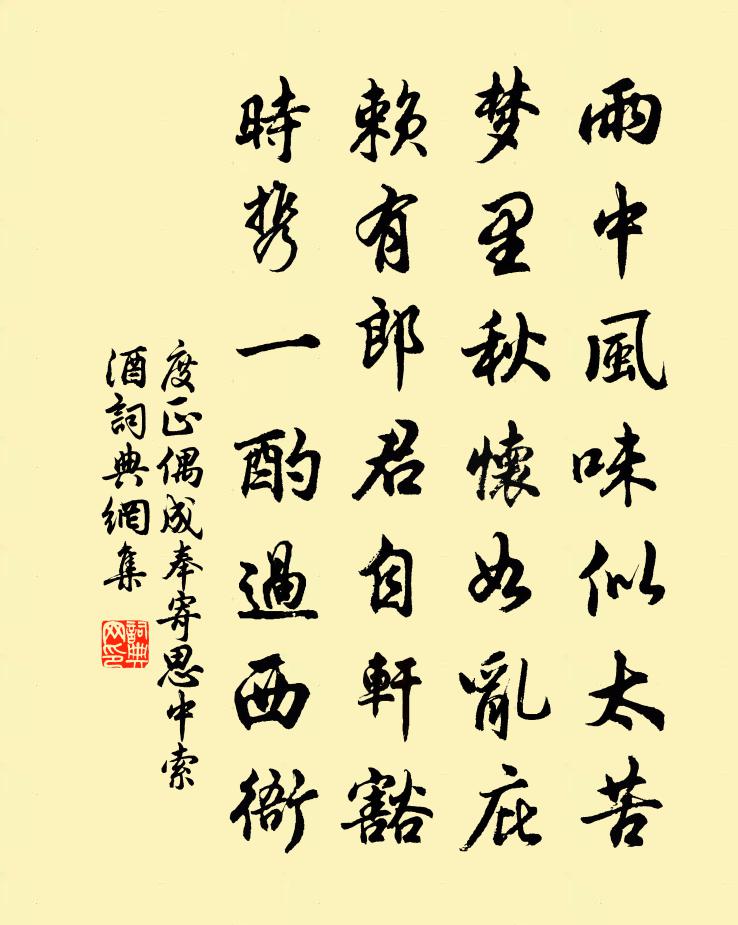 雨中風味似太苦
梦里秋懷如亂麻
賴有郎君自軒豁
時携一酌過西衙
度正偶成奉寄思中索
酒詞典網集
詞典网印